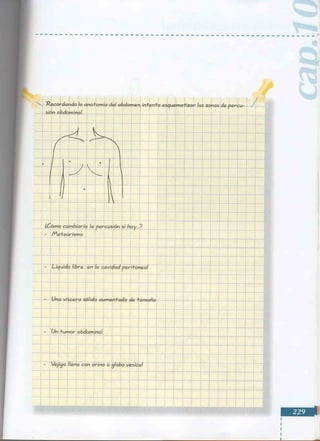 cap.10
Recordando la anatomía del abdomen, intenta esquematizar las zonas de percu-
sión abdominal.
¿Cómo cambiaría la percusión si hay..?
- Meteorismo
- Líquido libre en la cavidad peritoneal
- Una víscera sólida aumentada de tamaño
- Un tumor abdominal
- Vejiga llena con orina o globo vesical
229